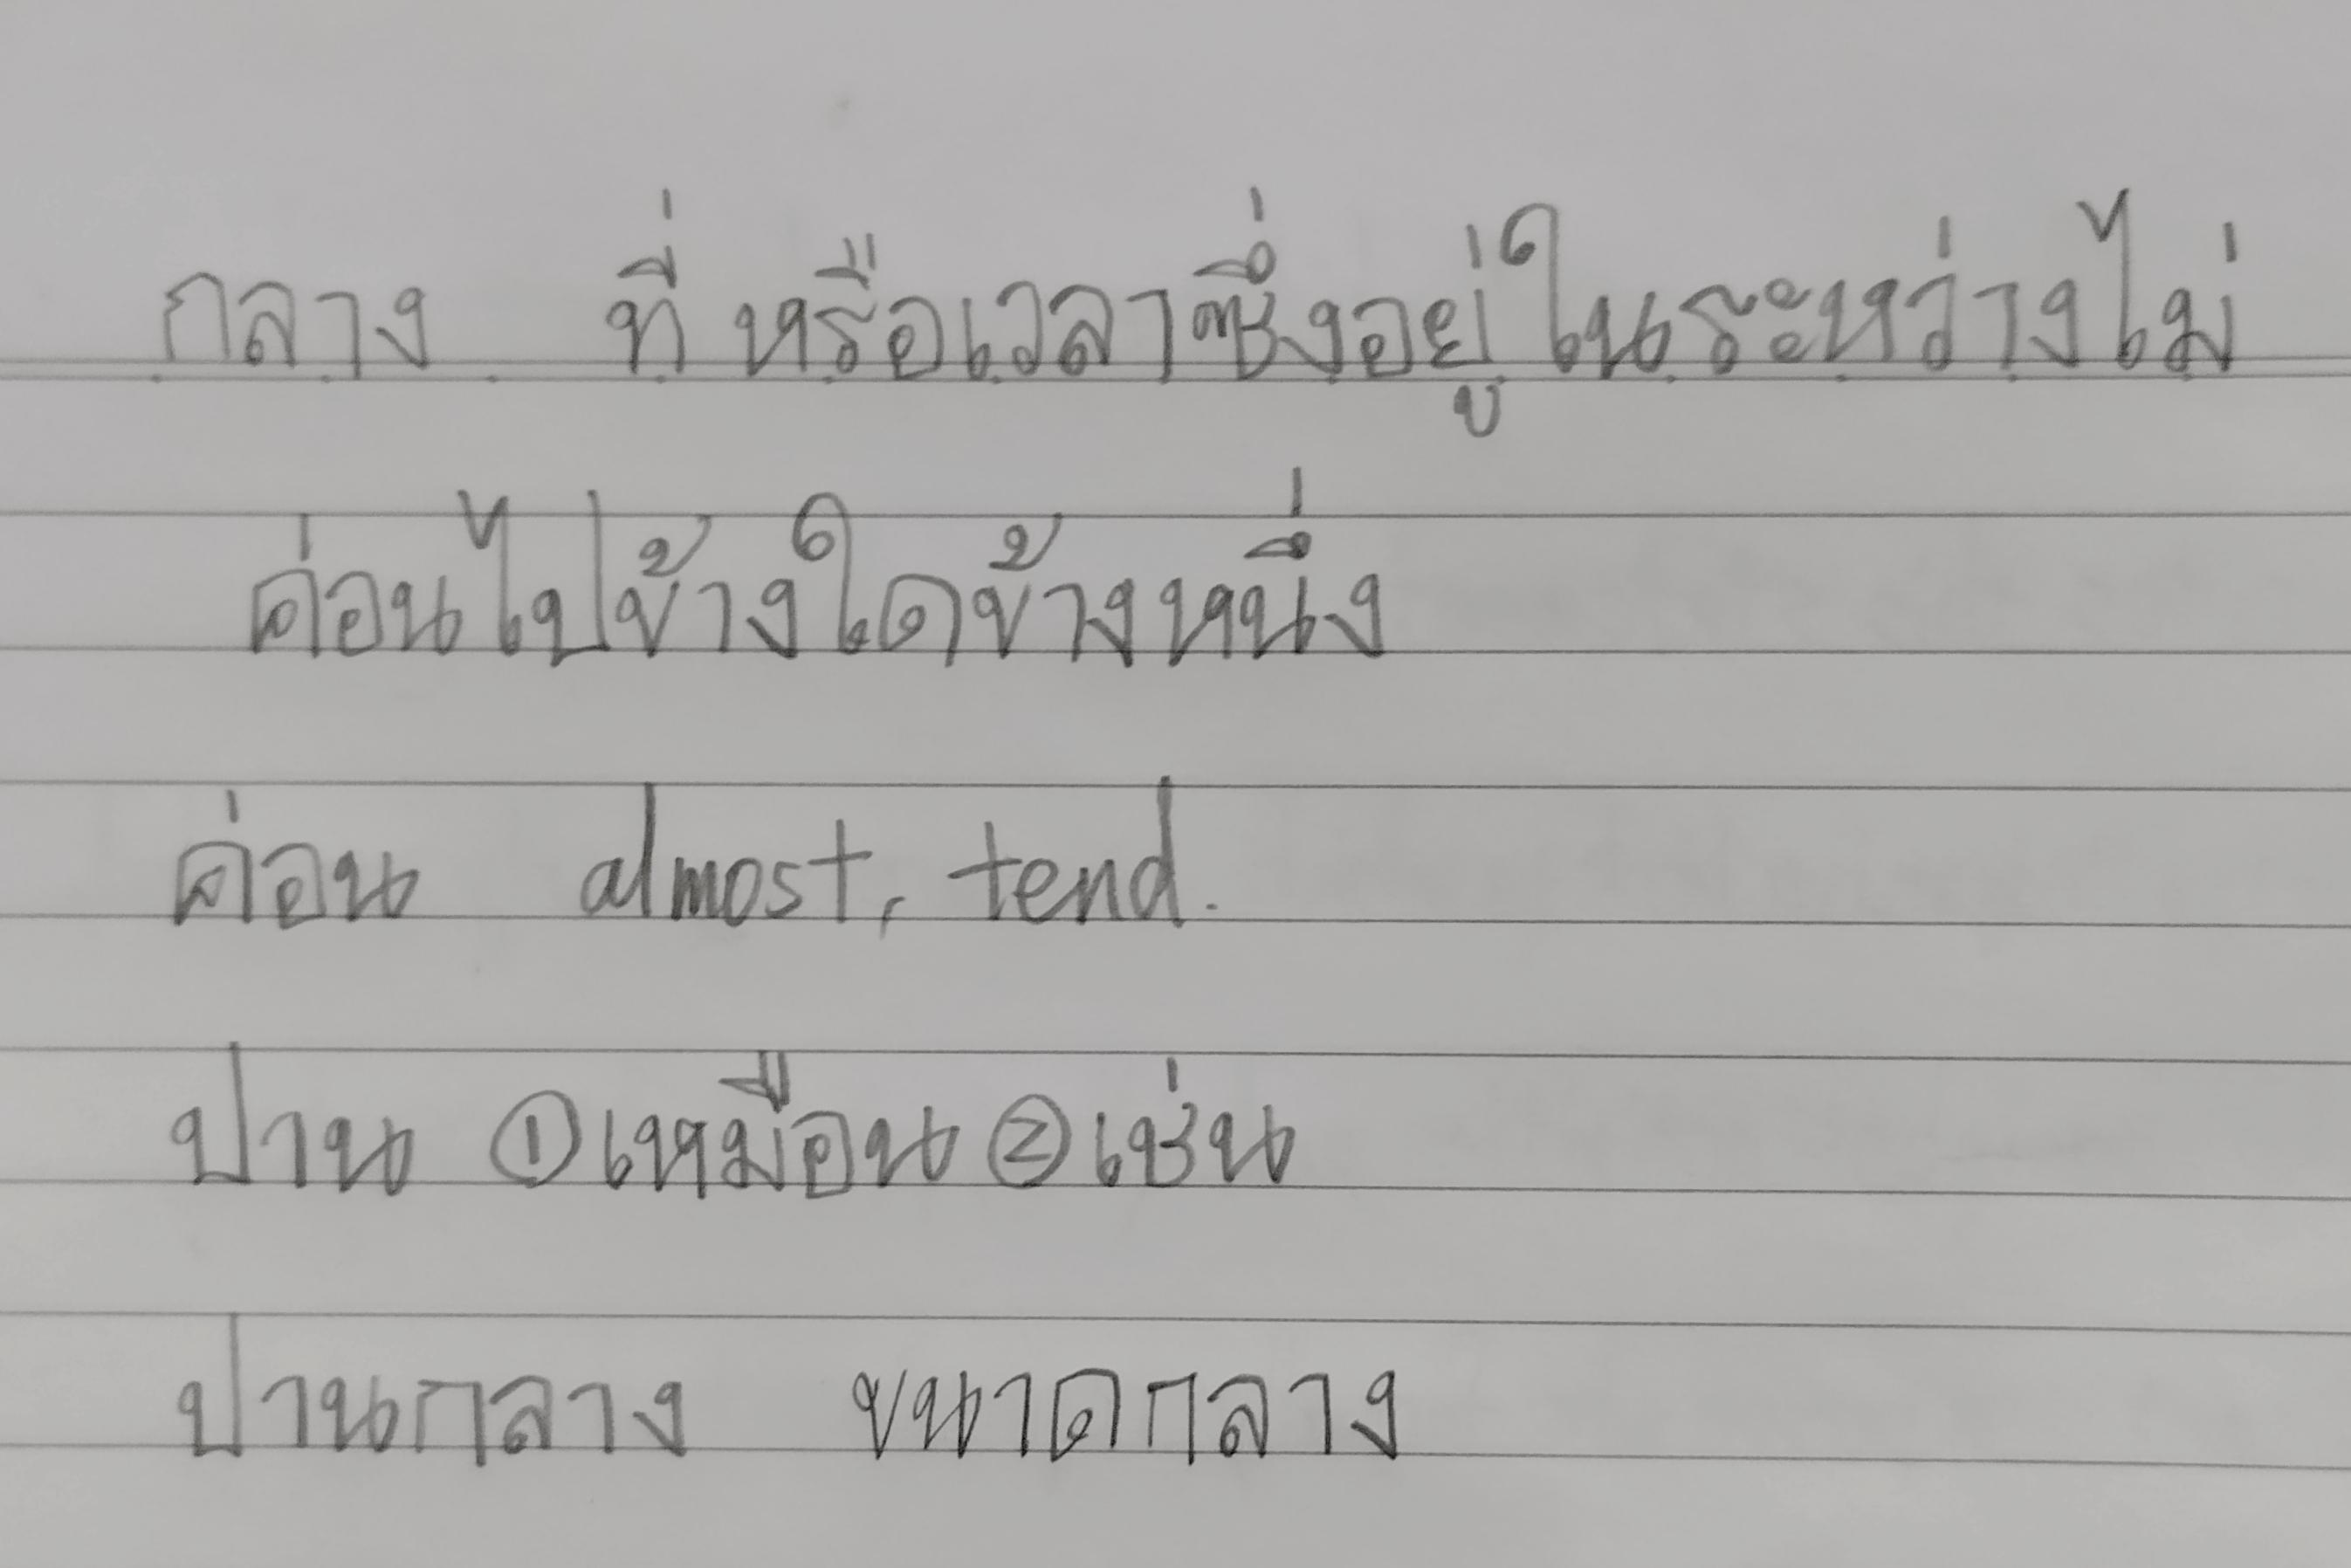 กลาง ที่ หรือเวลาซึ่งอยู่ในระหว่างไม่
ค่อนไปข้างใดข้างหนึ่ง
ค่อน almost, tend.
ปาน ①เหมือน ②เช่น
ปานกลาง ขนาดกลาง